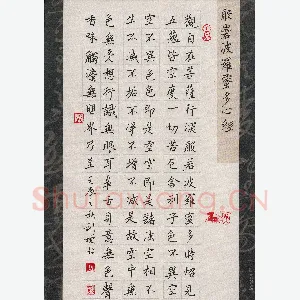 般若波羅蜜多心經
觀自在菩薩行深般若波羅蜜多時照見
五蘊皆空度一切苦厄舍利子色不異空
空不異色即是空即是諸法空相不
生不滅不垢不淨不增不減是故空中無
色無受想行識無眼耳鼻舌身意無色聲
香味觸法無眼界乃至